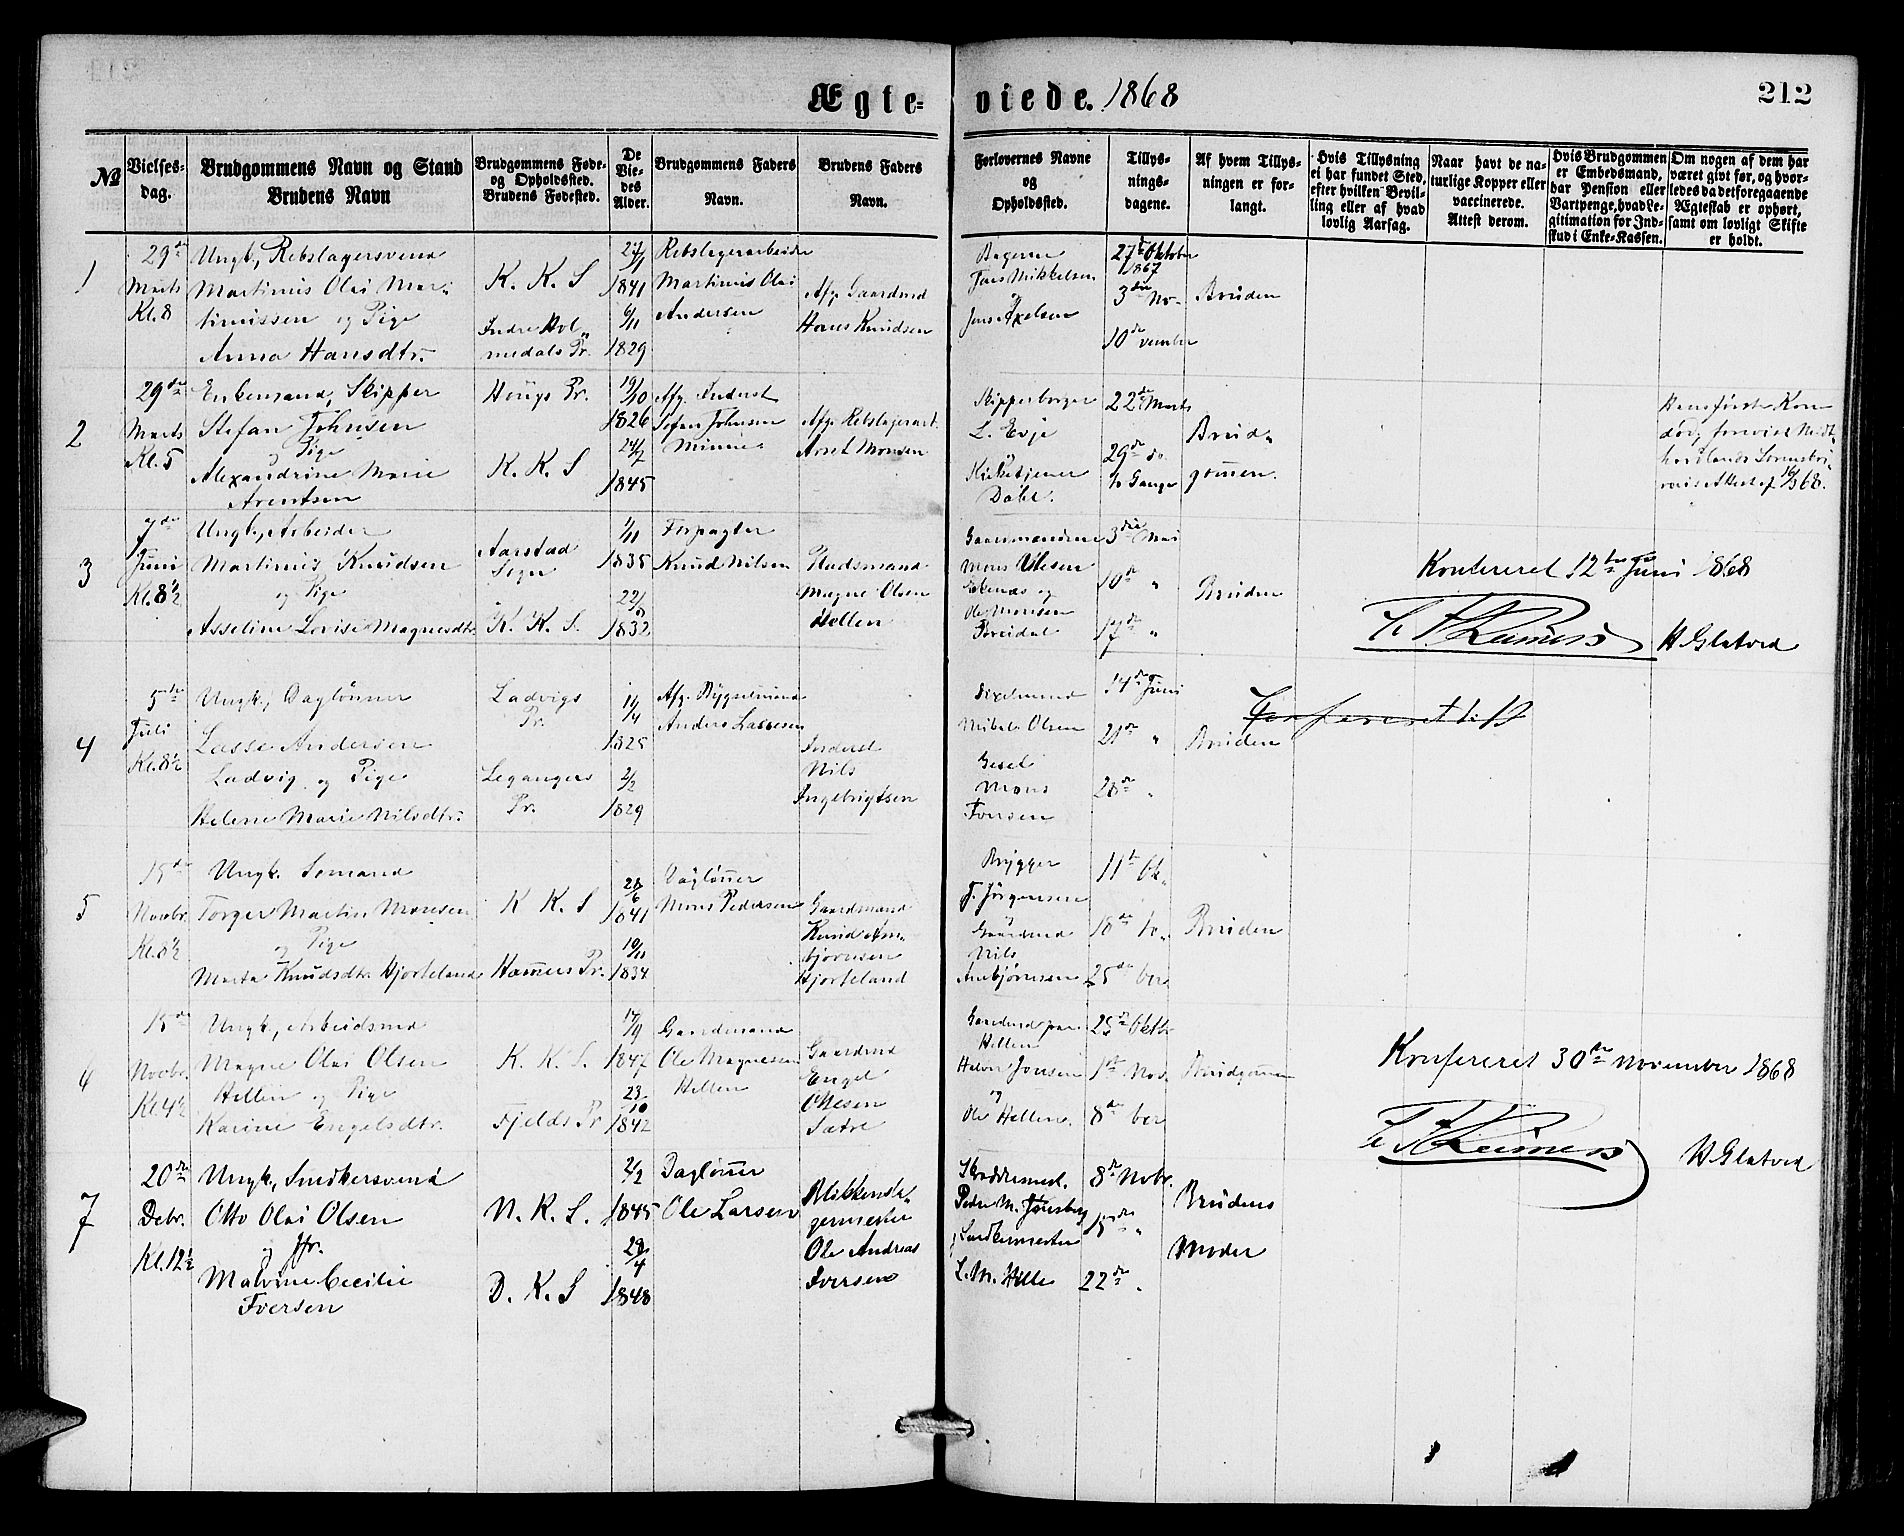 Ægteviede. 1868
212
№
Vielses-
dag.
Brudgommens Navn og Stand
Brudens Navn
Brudgommens Føde-
og Opholdssted.
Brudens Fødested.
De
Vie-
des
Alder.
Brudgommens Faders
Navn.
Brudens Faders
Navn.
Forlovernes Navne
og
Opholdssted.
Tillys-
nings-
dagene.
Af hvem Tillys-
ningen er for-
langt.
Hvis Tillysning
ei har fundet Sted,
efter hvilken Bevil-
ling eller af hvad
lovlig Aarsag.
Naar havt de na-
turlige Kopper eller
vaccinerede.
Attest derom.
Hvis Brudgommen
er Embedsmand,
har Pension eller
Vartpenge, hvad Le-
gitimation for Ind-
skud i Enke-Kassen.
Om nogen af dem har
været givt før, og hvor-
ledes da det foregaaende
Ægteskab er ophørt,
samt om lovligt Skifte
er holdt.
1
29de
Marts
Kl. 8
Ungk., Rebslagersvend
Martinus Olai Mar-
tinussen og Pige
Anna Hansdtr.
K. K. S
Indre Hol-
medals Pr.
1841
6/11
1829
Rebslagerarbeider
Martinus Olai
Andersen
Afg. Gaardmd
Hans Knudsen
Bageren
Jens Mikkelsen
og
Jens Axelsen
27de Oktober
1867
3die No-
10de vember
Bruden
2
29de
Marts
Kl. 5
Enkemand, Skipper
Stefan Johnsen
og Pige
Alexandrine Marie
Arentsen
Hougs Pr.
K. K. S
19/10
1826
24/2
1845
Afg. Inderst
Johnsen
Afg. Rebslagerarb.
Arent Monsen
Skipperborger
L. Evje
Kirketjener
Dahl.
22de Marts
29de do
Gange
Brud-
gommen.
Hans første Kone
død,
68.
3
7de
Juni
Kl. 8½
Ungk., Arbeider
Martinus Knudsen
og Pige
Asseline Lovise Magnesdtr
Aarstad
Sogn
K. K. S.
1/11
1835
22/9
1832
Forpagter
Knud Nilsen
Pladsmand
Magne Olsen
Hellen
Gaardmændene
Mons Olsen
Ekenæs og
Ole Monsen
3die Mai
10de "
17de "
Bruden
Konfereret 12te Juni 1868
H Glatved
4
5te
Juli
Kl. 8½
Ungk., Daglønner
Lasse Andersen
Ladvig og Pige
Helene Marie Nilsdtr.
Ladvigs
Pr.
Legangers
Pr.
11/4
1825
2/2
1829
Afg. Bygselmand
Anders Lassesen
Inderst
Nils
Ingebrigtsen
Mikal Olsen
Mons
Iversen
14de Juni
21de "
28de "
Bruden
5
15de
Novbr.
Kl. 8½
Ungk. Sømand
Torger Martin Monsen
og Pige
Marta Knudsdtr. Hjorteland
K K. S
Hammers Pr.
28/6
1841
19/11
1834
Dagløner
Mons Pedersen
Gaardmand
Knud Am-
bjørnsen
Hjorteland
Brygger
J. Jørgensen
og
Gaardmd
Nils
Ambjørnsen
11te Ok-
18de to-
25de ber
Bruden
6
15de
Novbr.
Kl. 4½
Ungk., Arbeidsmd
Magne Olai Olsen
Hellen og Pige
Karine Engelsdtr.
K. K. S.
Fjelds Pr
17/9
1847
23/10
1842
Gaardmand
Ole Magnesen
Hellen
Gaardmd
Engel
Ottesen
Sætre
Gaardmd paa
Hellen
Halvor Jonsen
og
Ole Hellen.
25de Oktbr
1ste Nov.
8de ber
Brudgommen
Konfereret 30te November 1868
H Glatved
7
20de
Debr.
Kl. 12½
Ungk., Snedkersvend
Otto Olai Olsen
og Jfr.
Malvine Cecilie
Iversen
N. K. S.
D. K. S
2/2
1845
28/4
1848
Dagløner
Ole Larsen
Blikkensla-
germester
Ole Andreas
Iversen
Skræddermest.
Peder M. Jønsberg
Snedkermester
L. M. Hille
8de Nobr.
15de "
22de "
Brudens
Moder